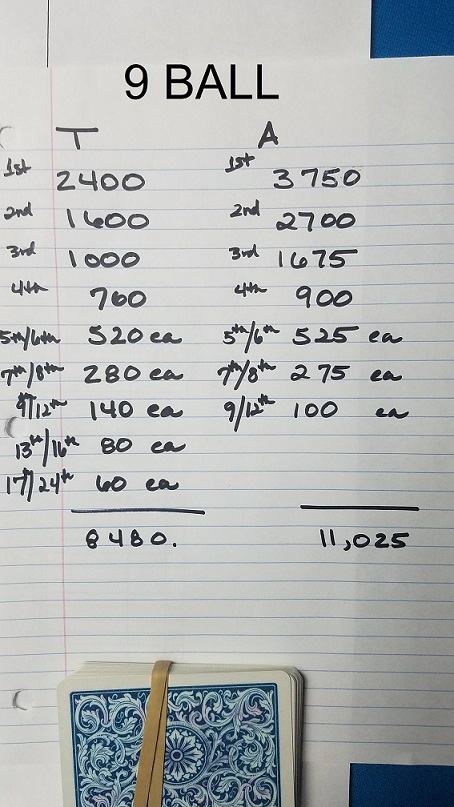 9 BALL
T A
1st 2400 1st 3750
2nd 1600 2nd 2700
3rd 1000 3rd 1675
4th 760 4th 900
5th/6th 520 ea 5th/6th 525 ea
7th/8th 280 ea 7th/8th 275 ea
9/12th 140 ea 9/12th 100 ea
13th/16th 80 ea
17/24th 60 ea
8480. 11,025